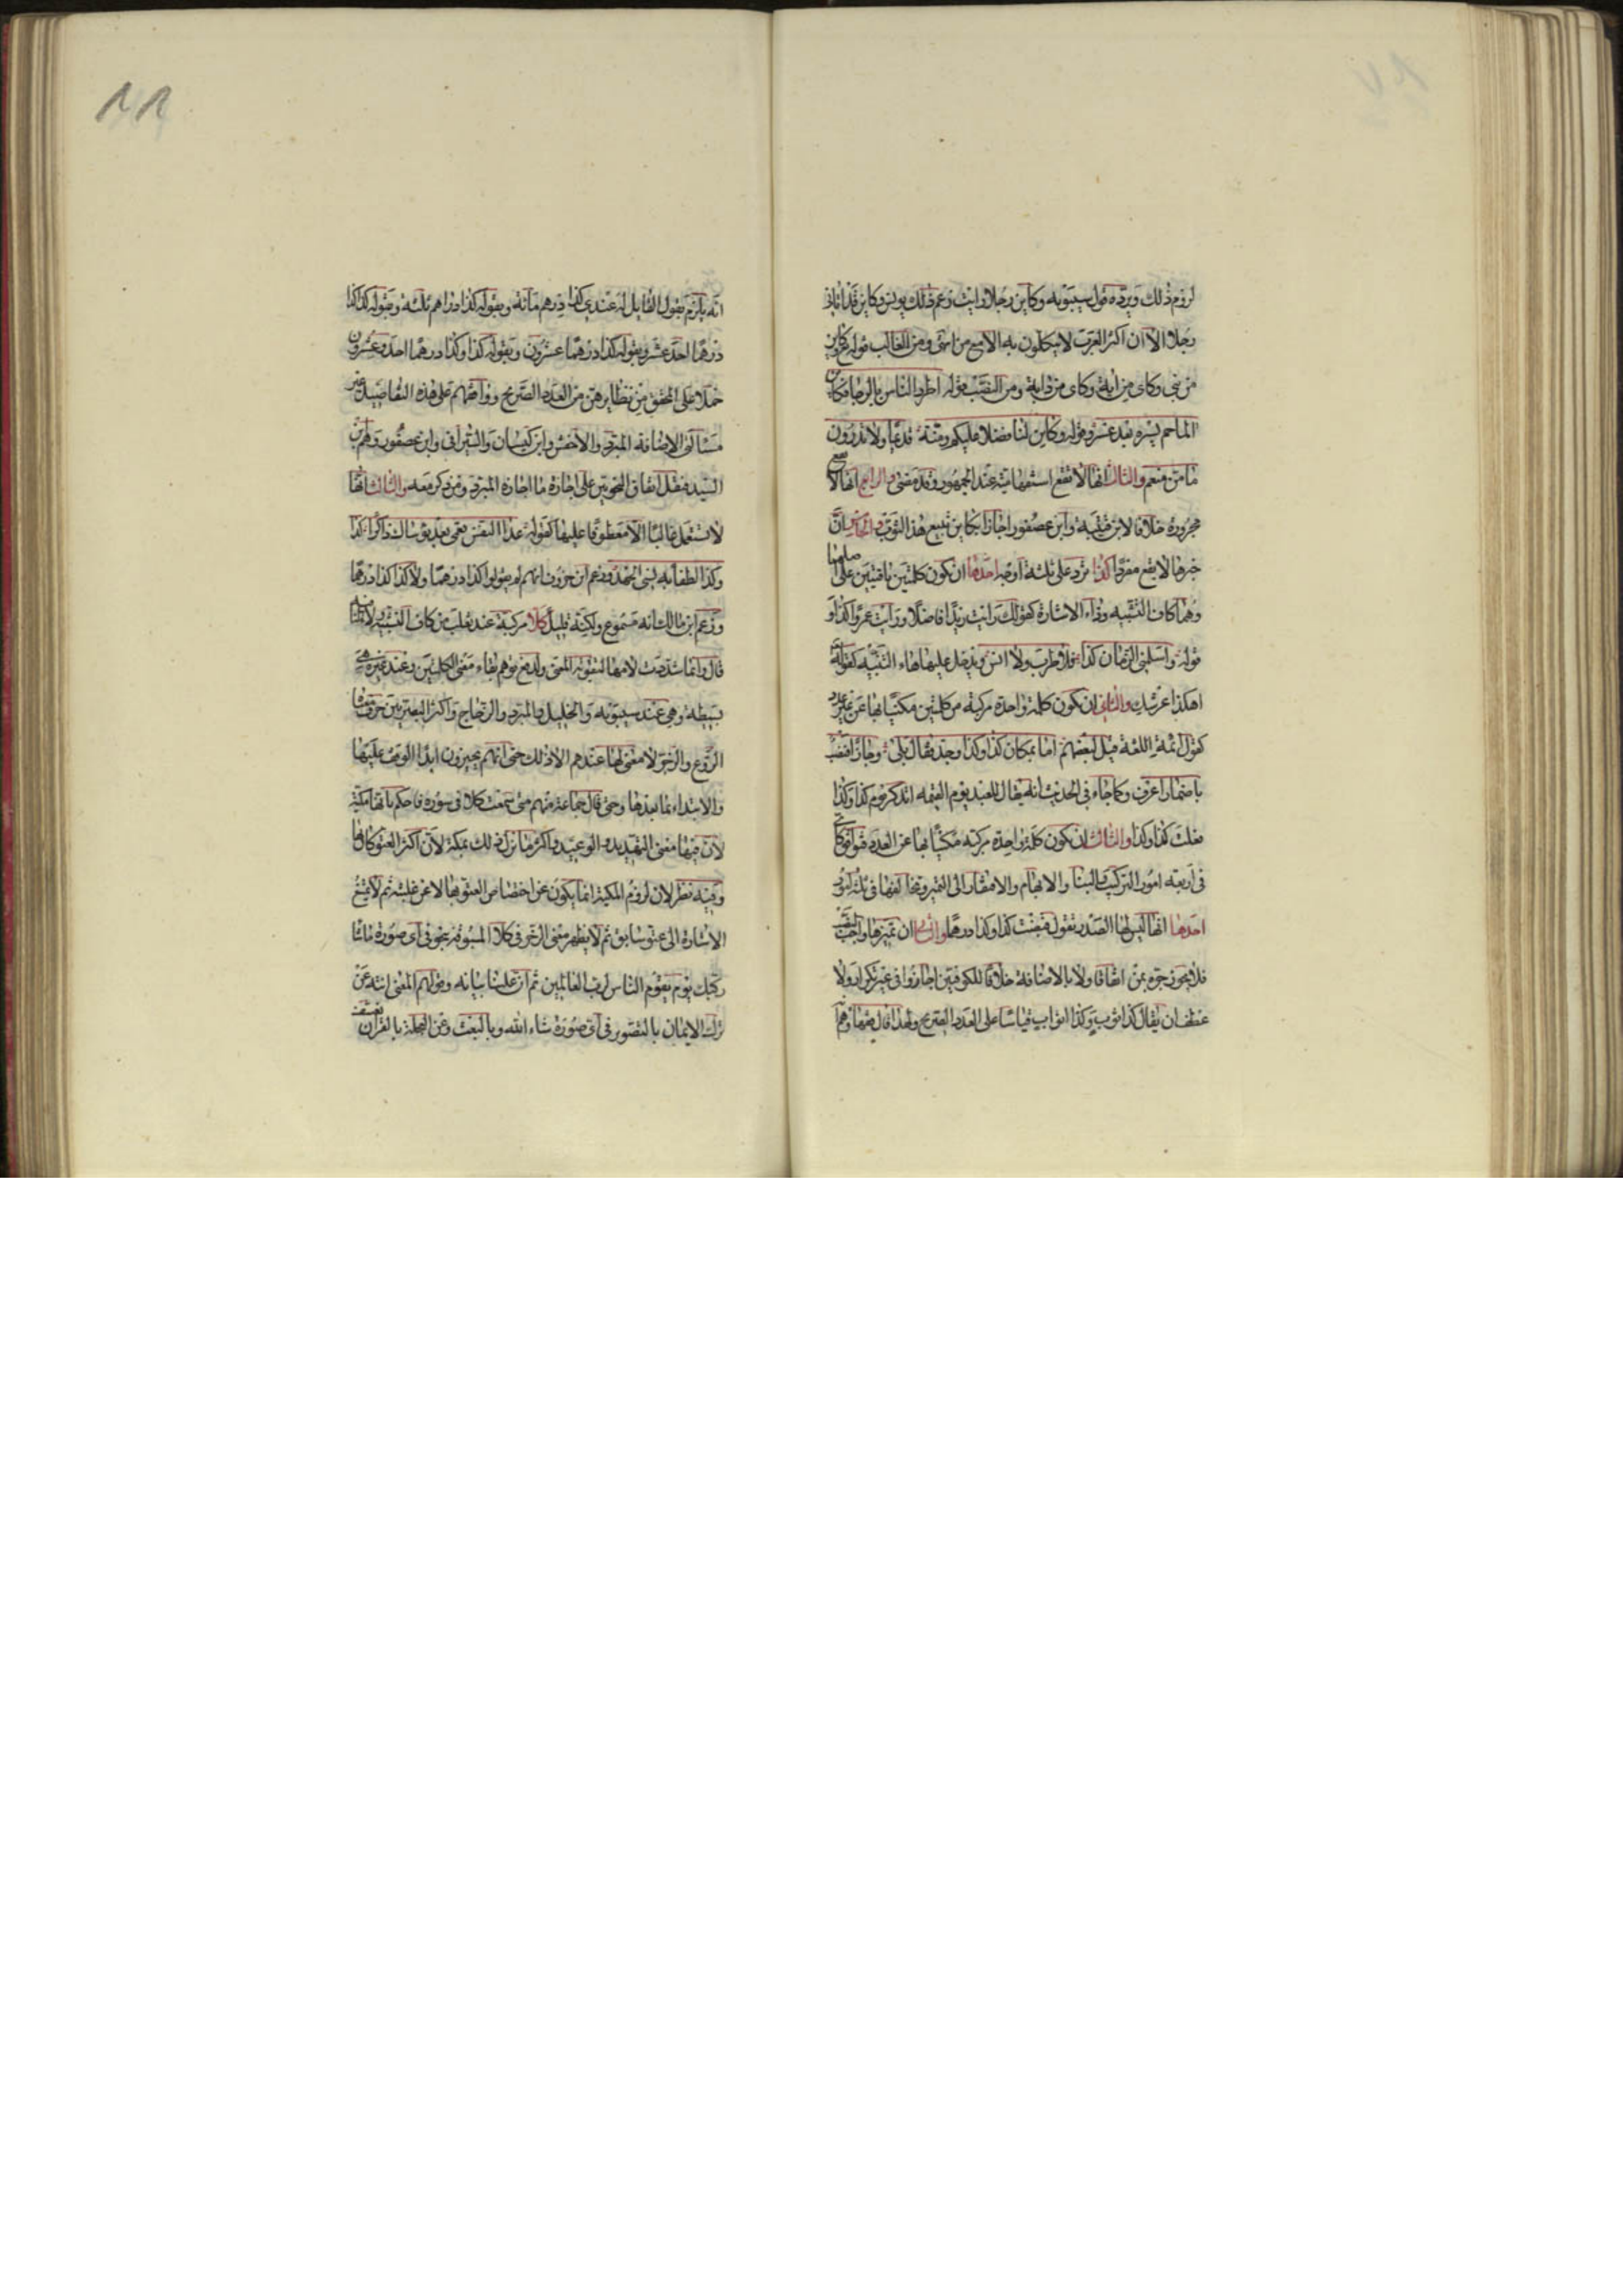 لزوم ذلك ويرده قول سيبويه وكاين رجلا رايت وزعم ذلك يونس وكاين قد اتانى
رجلا الا ان اكثر العرب لا يتكلمون به الا مع من انتهى ومن الغالب قوله تعالى وكاين
من نبى وكاى من اية وكاى من دابة ومن النصب قوله اطرد الياس بالرجا فكاين
الما حم يسره بعد عسر وقوله وكاين لنا فضلا عليكم ومنة قديما ولا تدرون
ما من منعم والثالث انها لا تقع استفهامية عند الجمهور وقد مضى والرابع انها لا تقع
مجرورة خلافا لابن قتيبة وابن عصفور اجازا بكاين تبيع هذا الثوب والخامس ان
خبرها لا يقع مفردا كذا ترد على ثلثة اوجه احدها ان تكون كلمتين باقيتين على اصلهما
وهما كاف التشبيه وذا الاشارة كقولك رايت زيدا فاضلا ورايت عمرا كذا و
قوله واسلمنى الزمان كذا فلا طرب ولا انس ويدخل عليها هاء التنبيه كقوله تعالى
اهكذا عرشك والثانى ان تكون كلمة واحدة مركبة من كلمتين مكنيا بها عن غير عدد
كقول ائمة اللغة قيل لبعضهم اما بمكان كذا وكذا وجذ فقال بلى وجاذا فنصب
باضمار اعرف وكما جاء فى الحديث انه يقال للعبد يوم القيمه اتذكر يوم كذا وكذا
فعلت كذا وكذا والثالث ان تكون كلمة واحدة مركبة مكنيا بها عن العدد فتوافق كاى
فى اربعة امور التركيب والبنا والابهام والافتقار الى التميز وتخالفها فى ثلثة امور
احدها انها ليس لها الصدر تقول قبضت كذا وكذا درهما والثانى ان تميزها واجب النصب
فلا يجوز جره بمن اتفاقا ولا بالاضافة خلافا للكوفيين اجازوا فى غير تكرار ولا
عطف ان يقال كذا ثوب وكذا اثواب قياسا على العدد الصريح ولهذا قال فقهاؤهم
انه يلزم بقول القايل له عندى كذا درهم مائة وبقوله كذا دراهم ثلثة وبقوله كذا كذا
درهما احد عشر وبقوله كذا درهما عشرون وبقوله كذا وكذا درهما احد وعشرون
حملا على المحقق من نظايرهن من العدد الصريح ووافقهم على هذه التفاصيل غير
مسالتى الاضافة المبرد والاخفش وابن كيسان والسيرافى وابن عصفور ووهم ابن
السيد فنقل اتفاق النحويين على اجازة ما اجازه المبرد ومن ذكر معه والثالث انها
لا تستعمل غالبا الا معطوفا عليها كقوله عد النفس نعمى بعد بوساك ذاكرا كذا
وكذا لطفا به نسى الجهد وزعم ابن خروف انهم لم يقولوا كذا درهما ولا كذا كذا درهما
وزعم ابن مالك انه مسموع ولكنه قليل كلا مركبة عند ثعلب من كاف التشبيه ولا النافية
قال وانما شددت لامها لتقوية المعنى ولدفع توهم بقاء معنى الكلمتين وعند غيره هى
بسيطة وهى عند سيبويه والخليل والمبرد والزجاج واكثر البصريين حرف معناها
الردع والزجر لا معنى لها عندهم الا ذلك حتى انهم يجيزون ابدا الوقف عليها
والابتداء بما بعدها وحتى قال جماعة منهم متى سمعت كلا فى سورة فاحكم بانها مكية
لان فيها معنى التهديد والوعيد واكثر ما نزل ذلك بمكة لان اكثر العتو كان بها
وفيه نظر لان لزوم المكية انما يكون عن اختصاص العتو بها لا عن غلبته ثم لا تمتنع
الاشارة الى عتو سابق ثم لا يظهر معنى الزجر فى كلا المسبوقة بنحو فى اى صورة ما شا
ركبك يوم يقوم الناس لرب العالمين ثم ان علينا بيانه وقولهم المعنى انته عن
ترك الايمان بالتصوير فى اى صورة شاء الله وبالبعث وعن العجلة بالقران تعسف